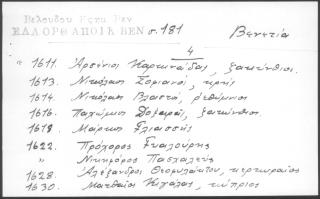 Βελουδου Ιερτα Βεν
ΕΛΛΟΡΘ ΑΠΟΙΚ ΒΕΝ σ. 181
Βενετία
4
1611. Ἀρσένιος Καρτανάδας, ζακύνθιος.
1613. Νικόλαος Σοριανός, κρής
1614. Νικόλαος Βλαστός, ρεθύμνιος
1616. Παχώμιος Δοξαράς, ζακύνθιος.
1619 Μάρκος Γλιασσής
1622. Πρόχορος Γυαλούρης
" Νικηφόρος Πασχαλεύς
1628. Ἀλέξανδρος Θεοφυλάκτου, κερκυραῖος
1630. Ματθαῖος Κιγάλας, κύπριος